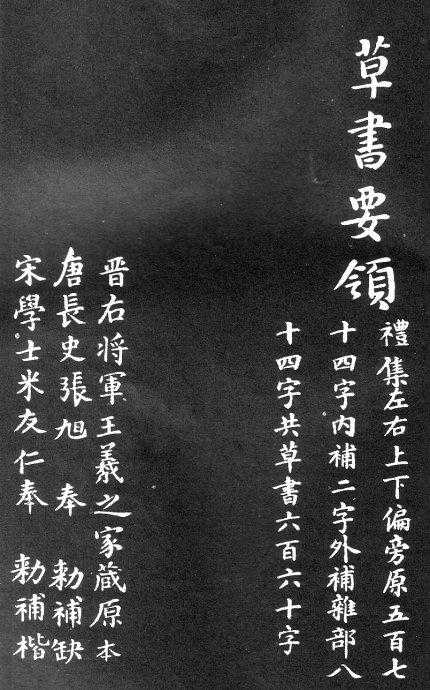 草書要領
禮集左右上下偏旁原五百七
十四字内補二字外補雜部八
十四字共草書六百六十字
晋右将軍王羲之家蔵原本
唐長史張旭奉 勑補缺
宋學士米友仁奉 勑補楷